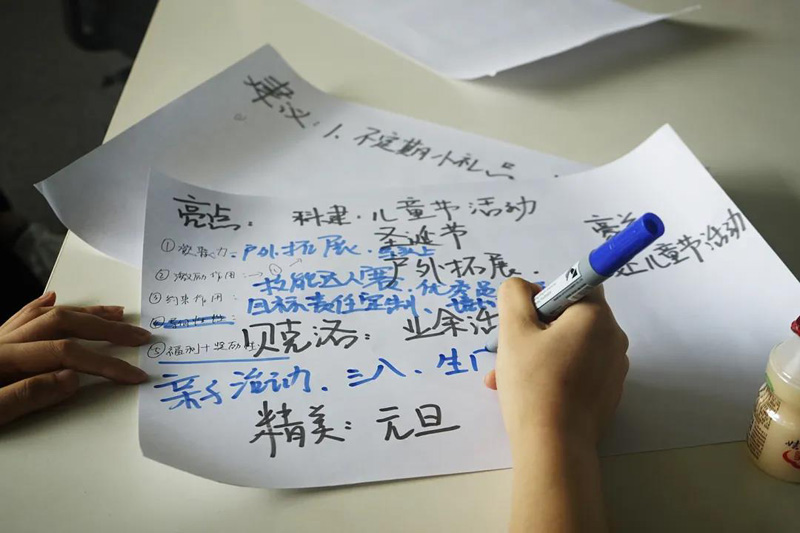 意义：1、不定期小礼品
亮点：科建、儿童节活动
圣诞节
户外拓展、
①凝聚力：户外拓展、
②激励作用：→技能达人赛、优秀员
③约束作用：目标责任定制、
贝克洛：业余活
⑤福利+奖励性：
亲子活动、三八、生
精美：元旦
亮点
儿童节活动